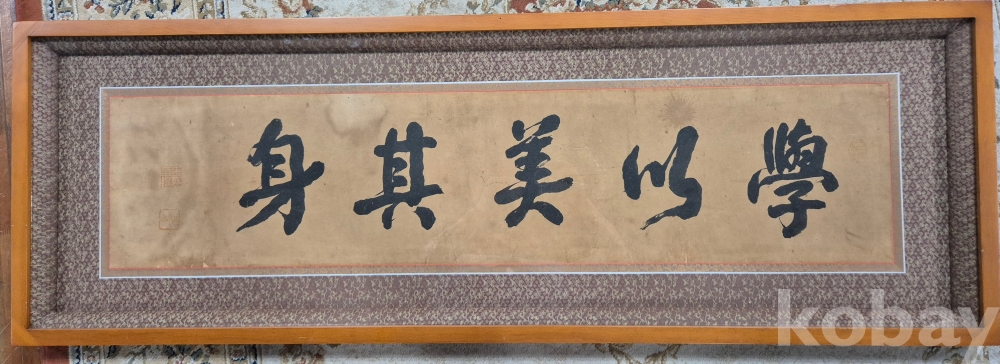 學以美其身
kobay